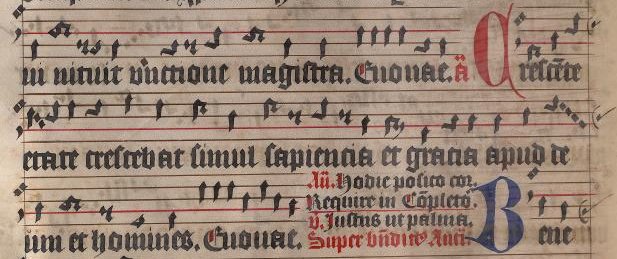 ui nituit vnctione magistra. Euouae. a Crescēte
etate crescebat simul sapiencia et gracia apud de
um et homines. Euouae.
Añ. Hodie posito cor.
Require in Cōpleto.
v. Justus ut palma.
Super bñdits Anti. Bene